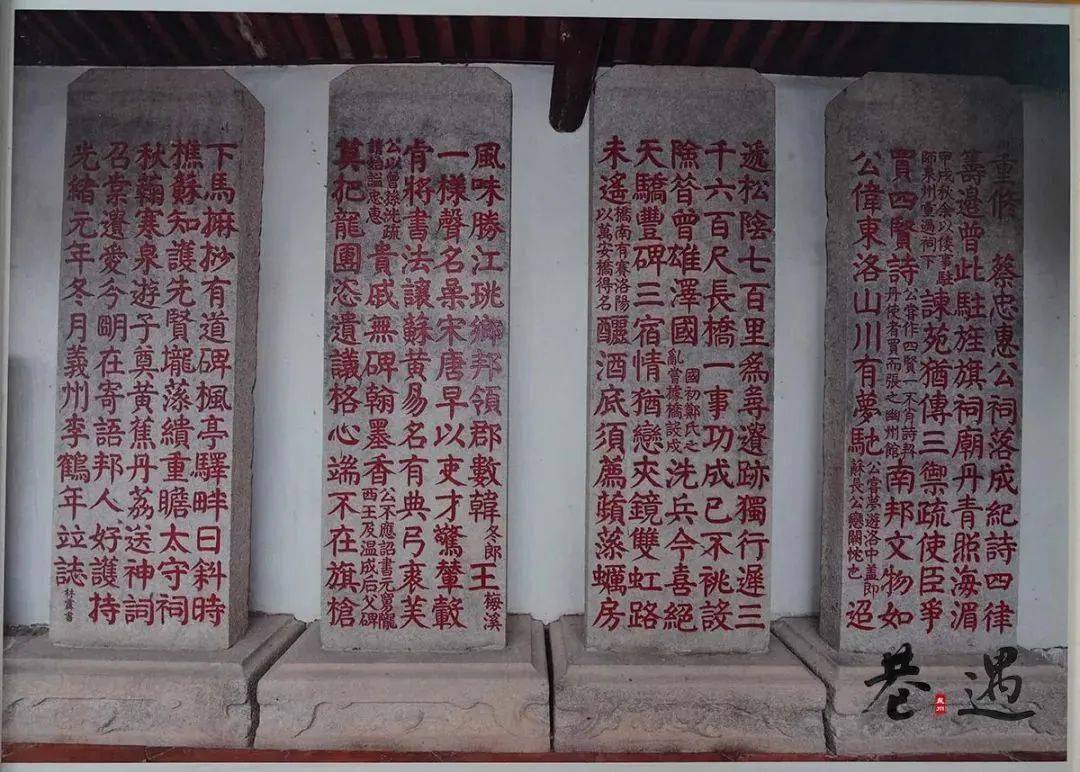 重脩 蔡忠惠公祠落成紀詩四律
籌邊曾此駐旌旗祠廟丹青照海湄
甲戌秋余以倭事駐師泉州重過祠下諫苑猶傳三禦疏使臣爭
買四賢詩公嘗作四賢一不肖詩契丹使者買而張之幽州館南邦文物如
公偉東洛山川有夢馳公嘗夢遊洛中蓋即蘇長公戀闕忱也迢
遞松陰七百里爲尋遺跡獨行遲三
千六百尺長橋一事功成已不祧設
險昔曾雄澤國國初鄭氏之亂嘗據橋設戍洗兵今喜絕
天驕豐碑三宿情猶戀夾鏡雙虹路
未遙橋南有賽洛陽以萬安橋得名釃酒底須薦蘋藻蠣房
風味勝江珧鄉邦領郡數韓冬郎王梅溪
一樣聲名纍宋唐早以吏才驚輦轂
肯將書法讓蘇黃易名有典弓裘芙
公以曾孫洸疏請始諡忠惠貴戚無碑翰墨香公不應詔書元舅隴西王及温成后父碑
莫犯龍團恣遺議格心端不在旗槍
下馬摩挱有道碑楓亭驛畔日斜時
樵蘇知護先賢壠藻繢重瞻太守祠
秋菊寒泉遊子奠黃蕉丹荔送神詞
召棠遺愛今圖在寄語邦人好護持
光緒元年冬月義州李鶴年竝誌
巷遇